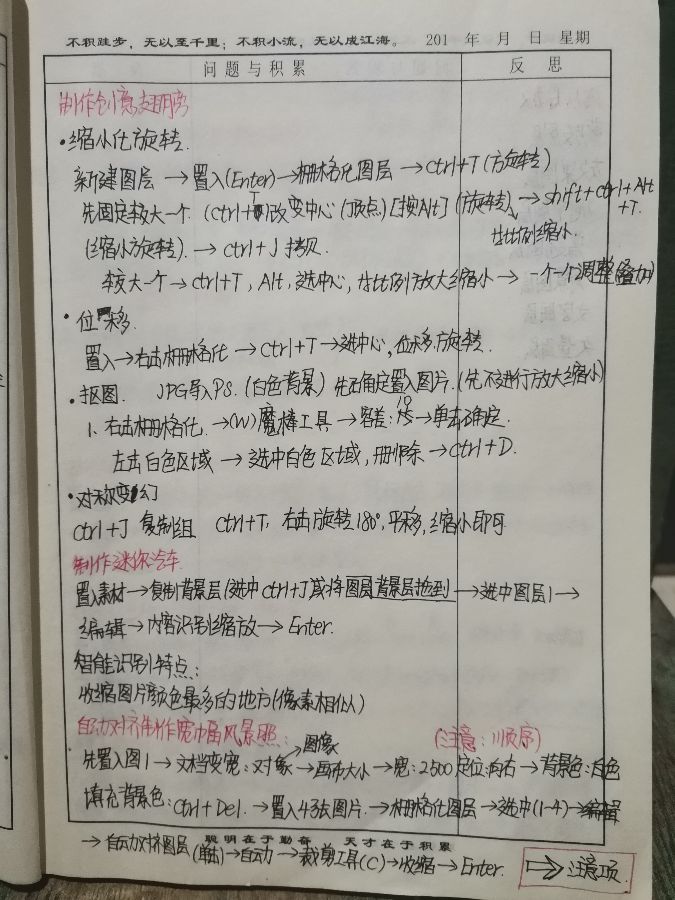 不积跬步，无以至千里；不积小流，无以成江海。 201 年 月 日 星期
问题与积累 反思
制作创意翅膀
·缩小化旋转.
新建图层→置入(Enter)→栅格化图层→ctrl+T(旋转)
先固定较大一个(ctrl+T)改变中心(顶点)[按Alt](旋转)→shift+ctrl+Alt+T.
等比例缩小.
(缩小方旋转).→ctrl+J拷贝.
较大一个→ctrl+T，Alt，选中心，等比例放大缩小→一个一个调整(叠加)
·位移.
置入→右击栅格化→ctrl+T→选中心，位移方旋转.
·抠图. JPG导入PS.(白色背景)先确定置入图片.(先不进行放大缩小)
1、右击栅格化.→(W)魔棒工具→容差:10→单击确定.
左击白色区域→选中白色区域，删除→ctrl+D.
·对称变幻
ctrl+J 复制组 ctrl+T，右击旋转180°，平移，缩小即可
制作迷你汽车
置入素材→复制背景层(选中ctrl+J)或将图层背景层拖到→选中图层1→
编辑→内容识别缩放→Enter.
智能识别特点：
收缩图片颜色最多的地方(像素相似)
自动对齐制作宽幅风景照： (注意：顺序)
图像
先置入图1→文档变宽：对象→画布大小→宽：2500 定位：向右→背景色：白色
填充背景色：ctrl+Del.→置入4张图片.→栅格化图层→选中(1-4)→编辑
聪明在于勤奋 天才在于积累
→自动对齐图层(单击)→自动→裁剪工具(C)→收缩→Enter.
⇒注意项.